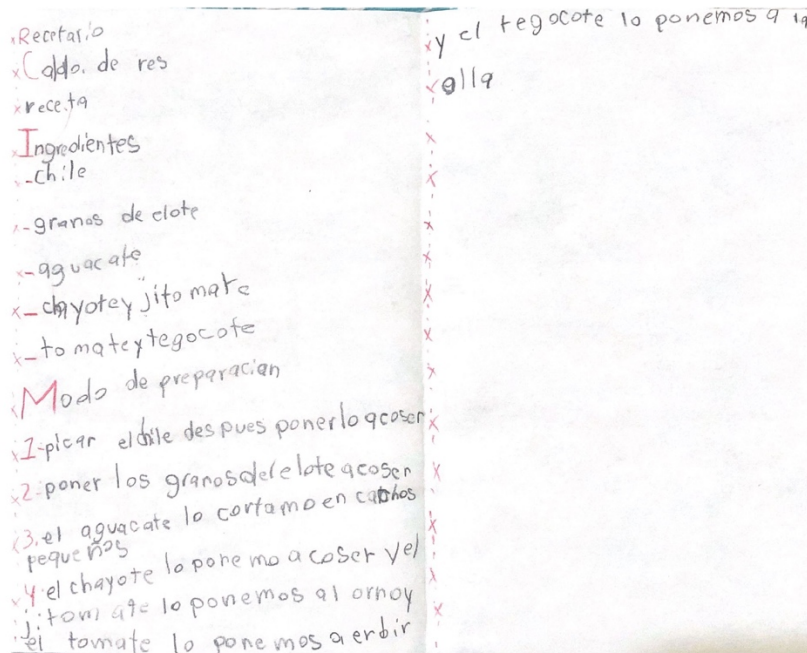 Recetario
Caldo. de res
receta
Ingredientes
-chile
-granos de elote
-aguacate
-chayotey jitomate
-tomateytegocote
Modo de preparacian
1-picar elchile des pues ponerlo acoser
2-poner los granosdelelote acoser
3.el aguacate lo cortamo en cachos
pequeños
4 el chayote lo pone mo a coser yel
jitomate lo ponemos al ornoy
el tomate lo pone mos a erbir
y el tegocote lo ponemos a la
olla